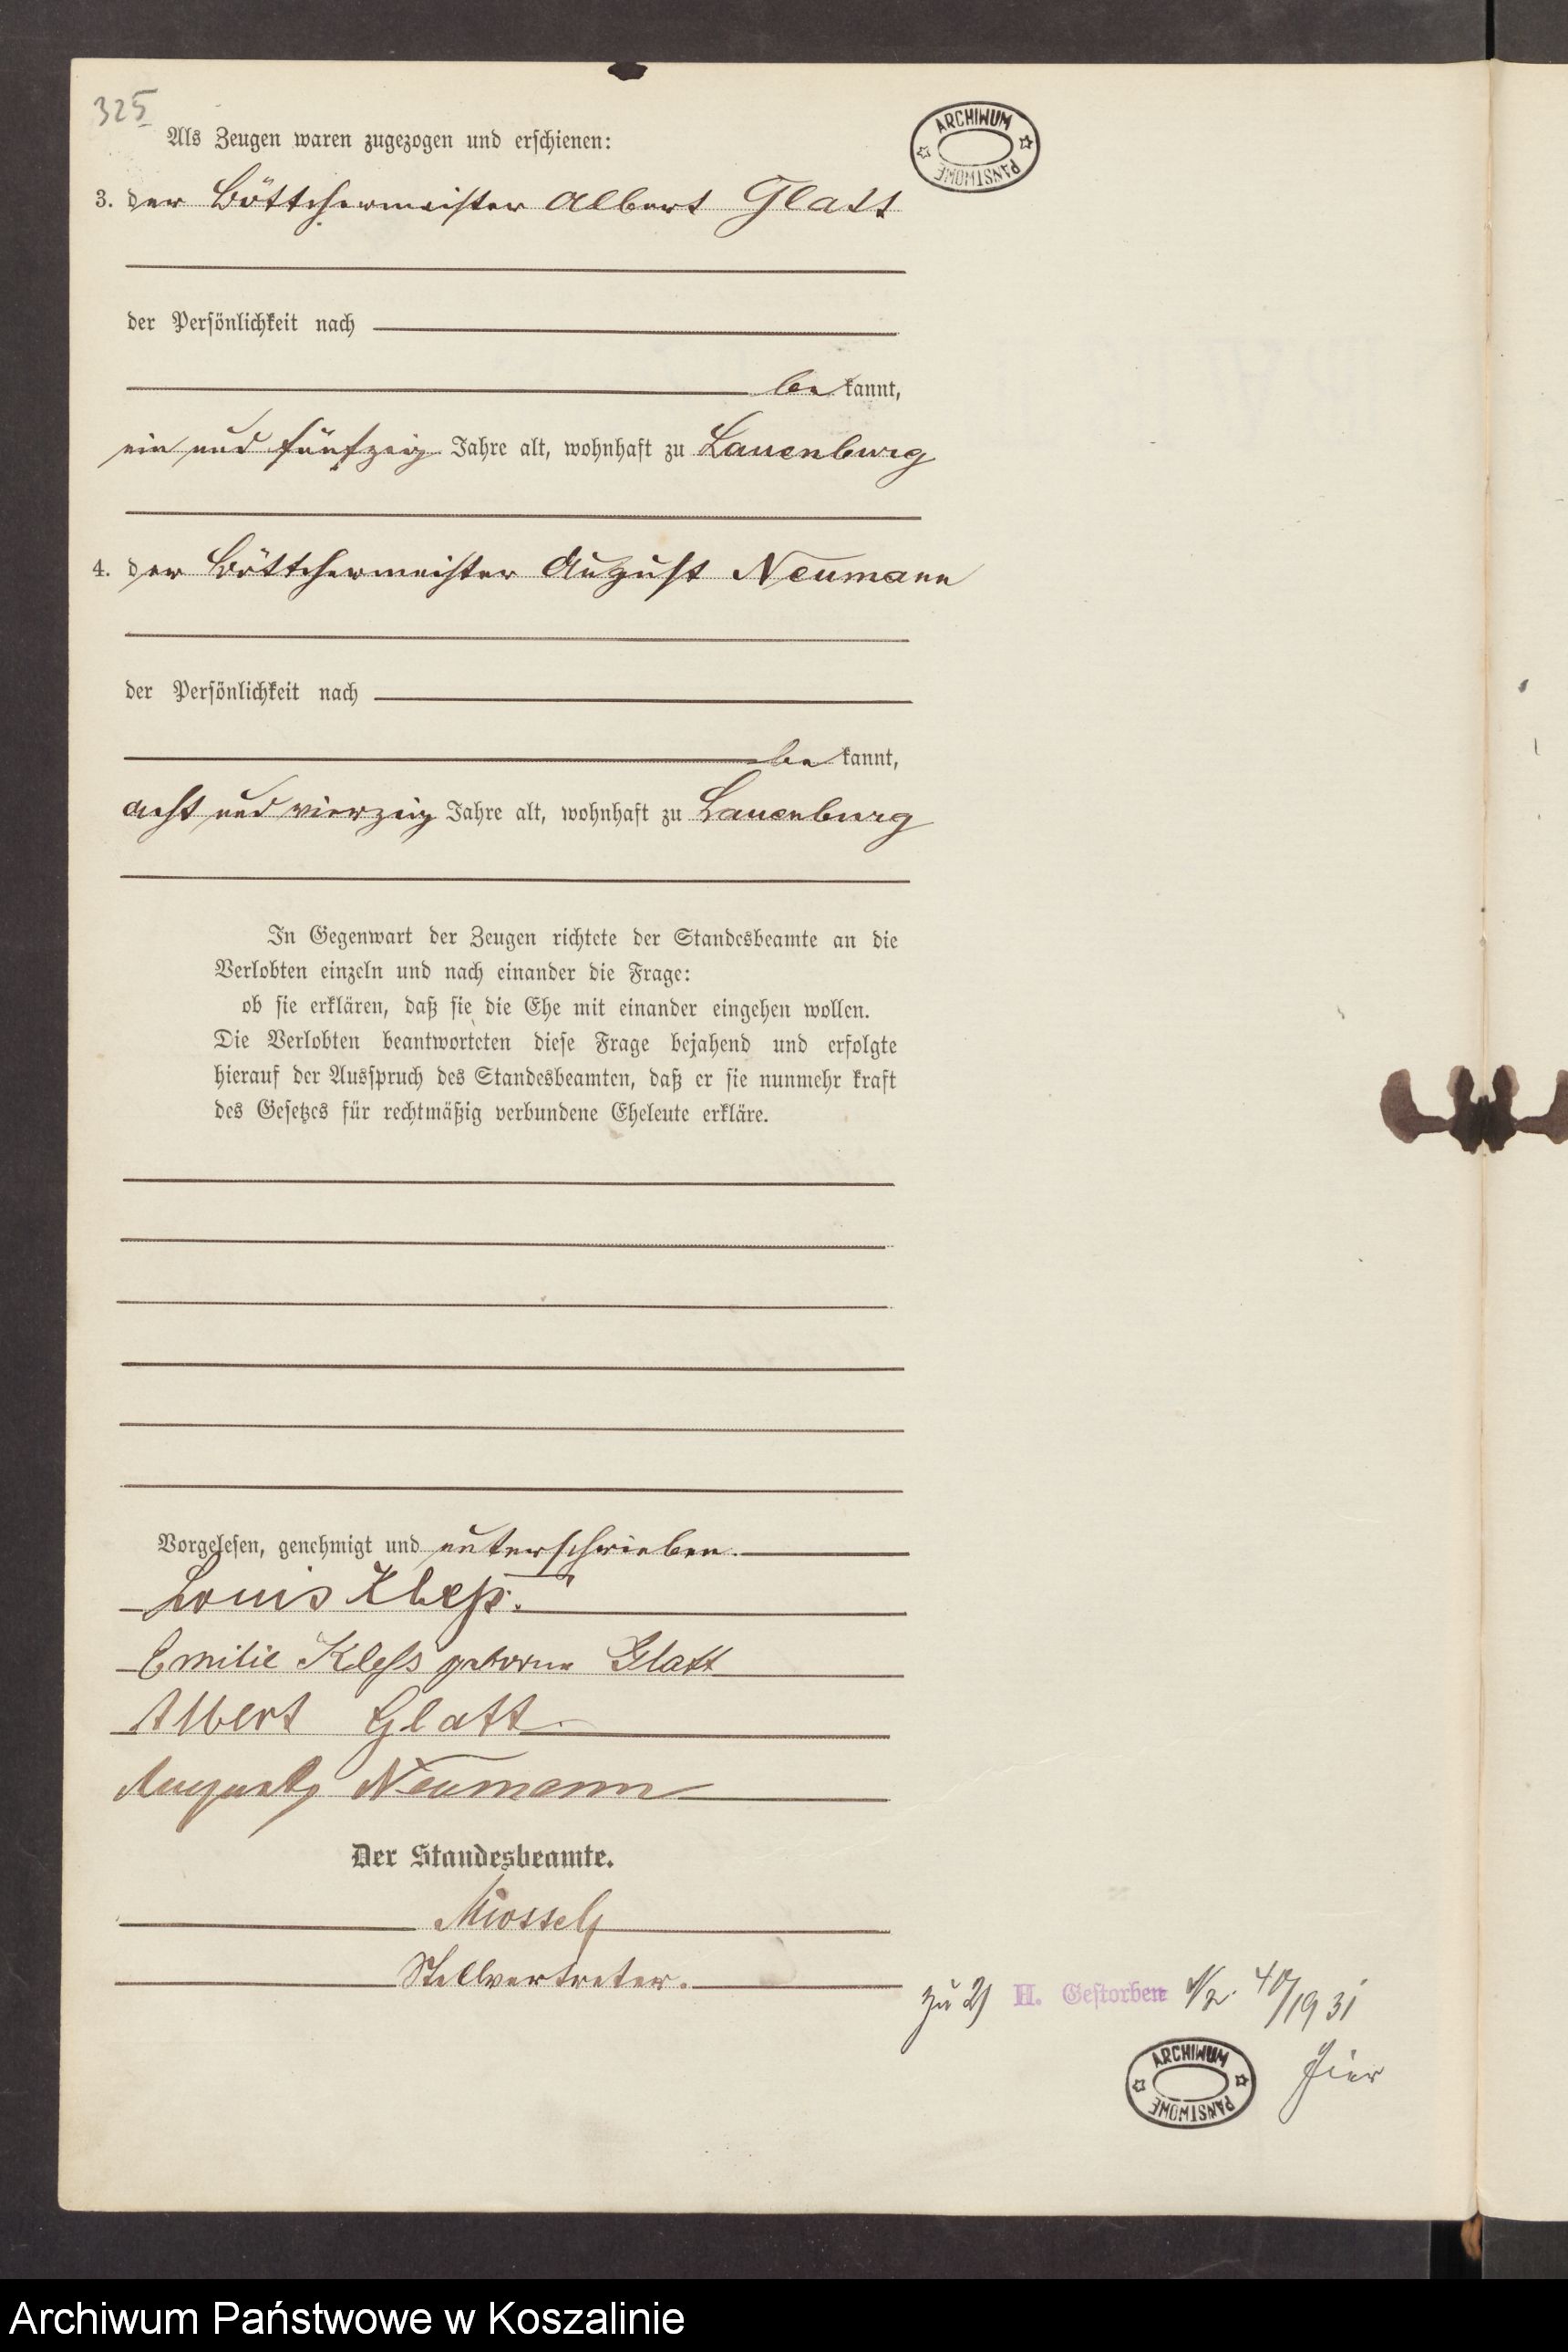 325
Als Zeugen waren zugezogen und erschienen:
ARCHIWUM PAŃSTWOWE
3. der Böttchermeister Albert Glatt
der Persönlichkeit nach
be kannt,
ein und fünfzig Jahre alt, wohnhaft zu Lauenburg
4. der Böttchermeister August Neumann
der Persönlichkeit nach
be kannt,
acht und vierzig Jahre alt, wohnhaft zu Lauenburg
In Gegenwart der Zeugen richtete der Standesbeamte an die
Verlobten einzeln und nach einander die Frage:
ob sie erklären, daß sie die Ehe mit einander eingehen wollen.
Die Verlobten beantworteten diese Frage bejahend und erfolgte
hierauf der Ausspruch des Standesbeamten, daß er sie nunmehr kraft
des Gesetzes für rechtmäßig verbundene Eheleute erkläre.
Vorgelesen, genehmigt und unterschrieben.
Louis Kleß.
Emilie Kleß geborene Glatt
Albert Glatt
Neumann
Der Standesbeamte.
Stellvertreter.
zu 2) II. Gestorben Nr. /1931
ARCHIWUM PAŃSTWOWE
hier
Archiwum Państwowe w Koszalinie